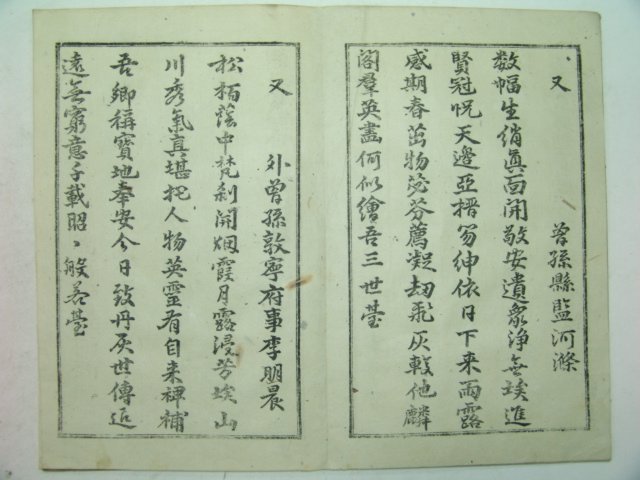 又
曾孫縣監河滌
数幅生綃真面開敬安遺象淨無埃進
賢冠帨天邊亞搢笏紳依日下来雨露
感期春茁物苾芬薦凝劫飛灰輚他麟
閣羣英畵何似繪吾三世䑓
又
外曾孫敦寧府事李朋晨
松栢蔭中梵刹開烟霞月露浸芳埃山
川秀氣真堪托人物英靈有自来裨補
吾鄉稱寶地奉安今日致丹灰世傳近
遠無窮意千載昭〻般若䑓